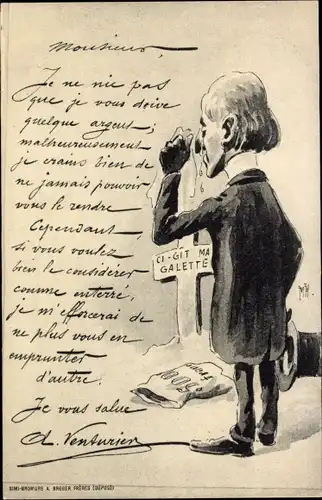 Monsieur,
Je ne nie pas
que je vous doive
quelque argent;
malheureusement
je crains bien de
ne jamais pouvoir
vous le rendre
Cependant,
si vous voulez
bien le considérer
comme enterré,
je m'efforcerai de
ne plus vous en
emprunter
d'autre.
Je vous salue
A. Venturier
CI-GIT MA
GALETTE
SIMI-BROMURE A. BREGER FRÈRES (DÉPOSÉ)